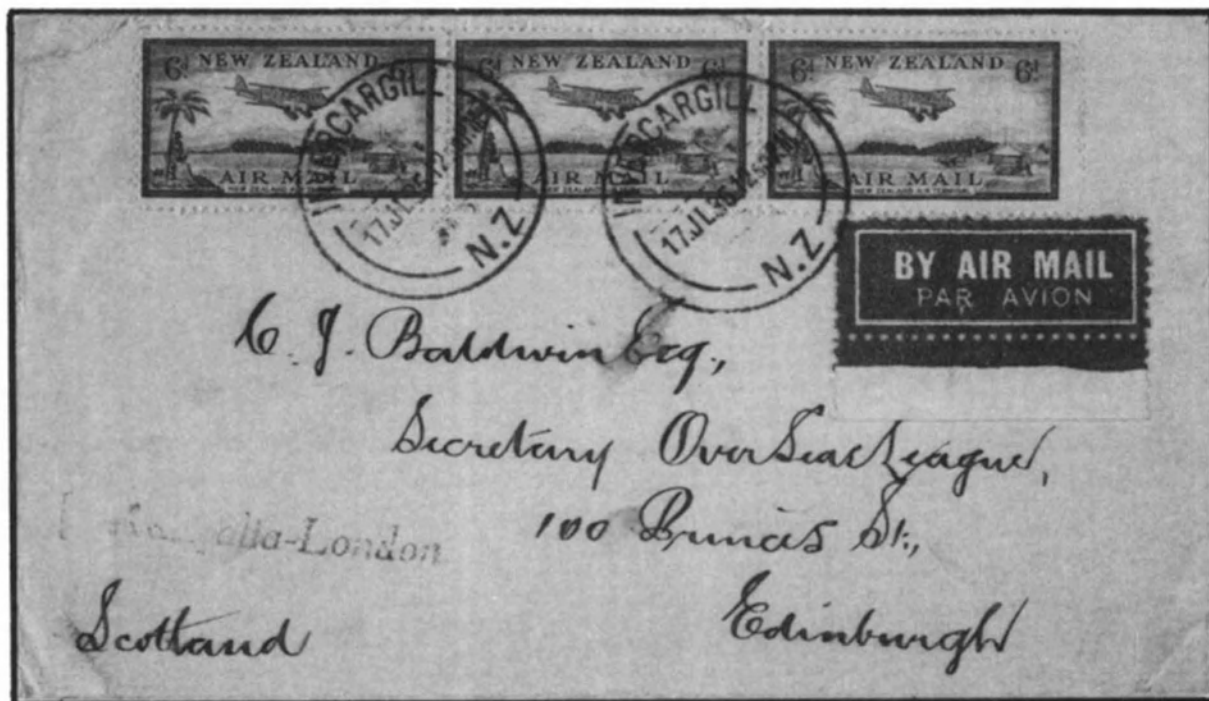 6d NEW ZEALAND
AIR MAIL
6d NEW ZEALAND 6d
AIR MAIL
6d NEW ZEALAND 6d
AIR MAIL
INVERCARGILL
17 JL 35
N.Z
INVERCARGILL
17 JL 35
N.Z
BY AIR MAIL
PAR AVION
C. J. Baldwin Esq.,
Secretary Over Seas League,
100 Princes St.,
-London
Edinburgh
Scotland